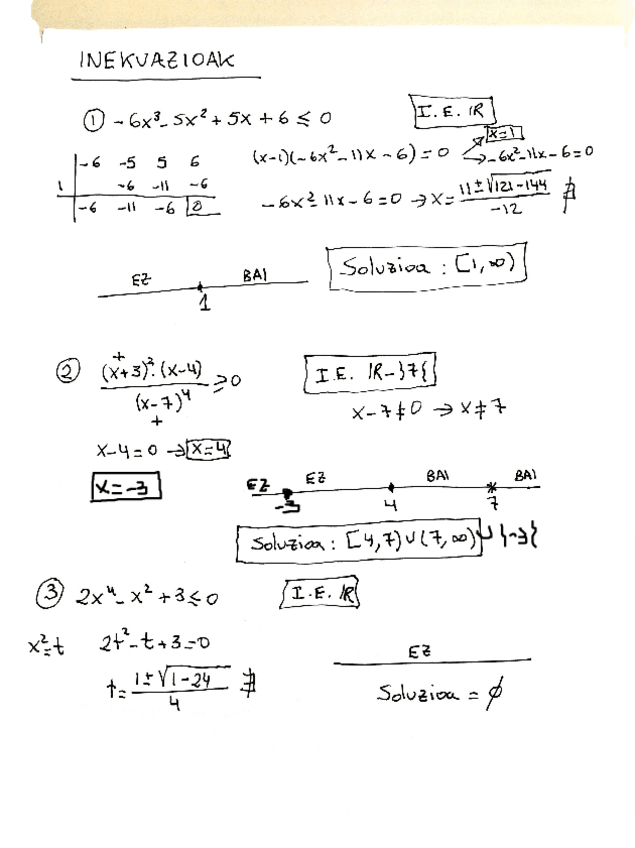 INEKUAZIOAK
① -6x³-5x²+5x+6 ≤ 0 I.E. ℝ
-6 -5 5 6 (x-1)(-6x²-11x-6)=0 x=1
1 -6 -11 -6 → -6x²-11x-6=0
-6 -11 -6 0 -6x²-11x-6=0 → x= 11±√121-144 / -12 ∄
EZ BAI Soluzioa : [1,∞)
1
② (x+3)²·(x-4) / (x-7)⁴ ≥ 0 I.E. ℝ-}7{
+ +
x-7≠0 → x≠7
x-4=0 → x=4
x=-3 EZ EZ BAI BAI
-3 4 7
Soluzioa : [4,7)∪(7,∞) ∪ }-3{
③ 2x⁴-x²+3≤0 I.E. ℝ
x²=t 2t²-t+3=0
t= 1±√1-24 / 4 ∄ EZ
Soluzioa = ∅